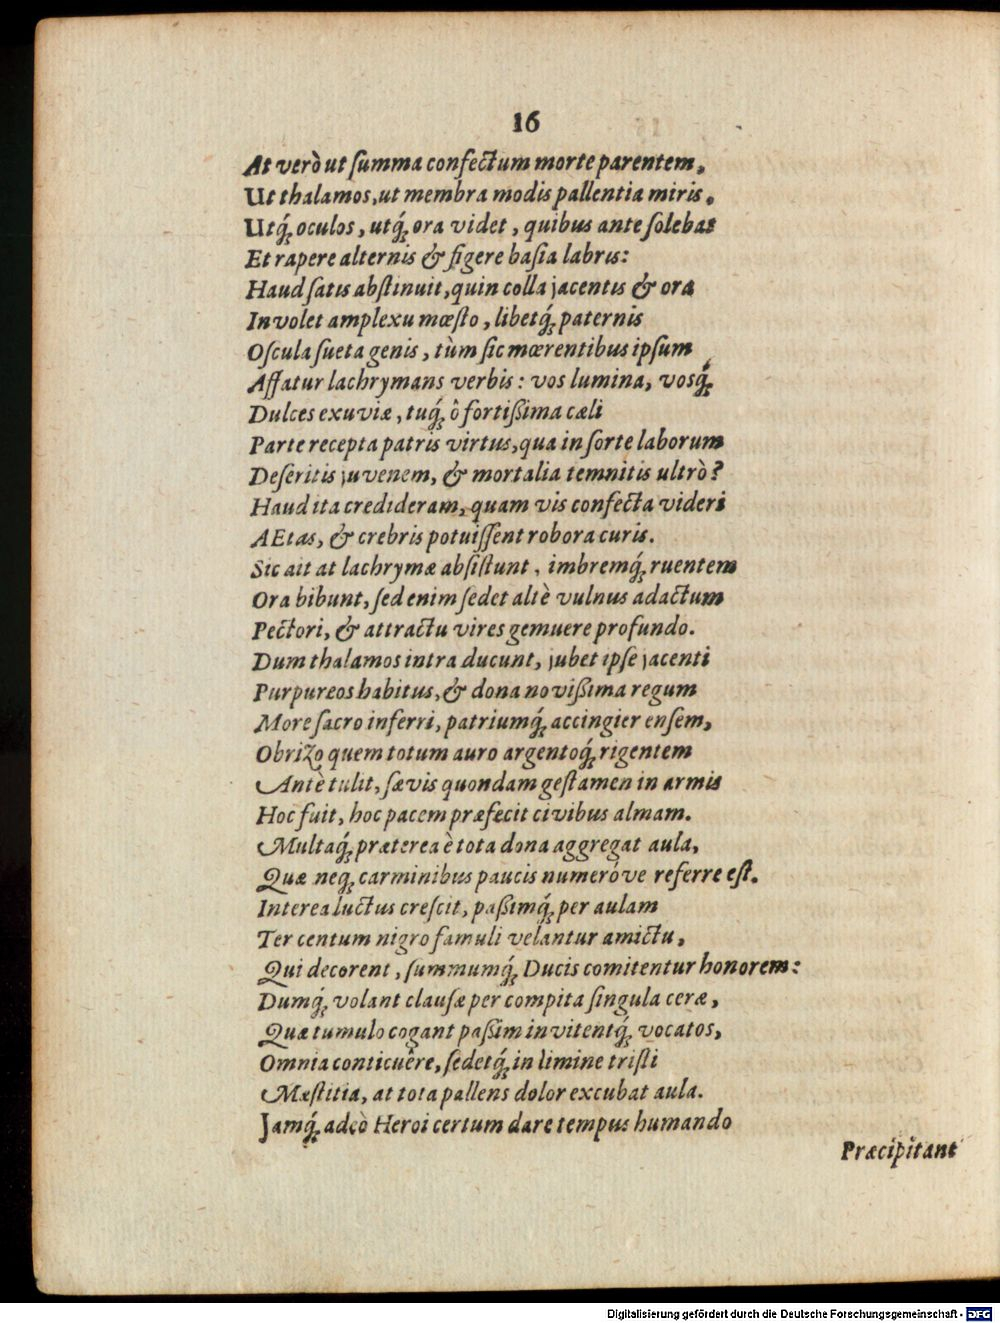 16
At verò ut ſumma confectum morte parentem,
Ut thalamos, ut membra modis pallentia miris.
Utq́; oculos, utq́; ora videt, quibus ante ſolebat
Et rapere alternis & figere baſia labris:
Haud ſatis abſtinuit, quin colla jacentis & ora
Involet amplexu mœſto, libetq́; paternis
Oſcula ſueta genis, tùm ſic mœrentibus ipſum
Affatur lachrymans verbis: vos lumina, vosq́;
Dulces exuviæ, tuq́; ô fortiſſima cæli
Parte recepta patris virtus, qua in ſorte laborum
Deſeritis juvenem, & mortalia temnitis ultrò?
Haud ita credideram, quam vis confecta videri
AEtas, & crebris potuiſſent robora curis.
Sic ait at lachrymæ abſiſtunt, imbremq́; ruentem
Ora bibunt, ſed enim ſedet altè vulnus adactum
Pectori, & attractu vires gemuere profundo.
Dum thalamos intra ducunt, jubet ipſe jacenti
Purpureos habitus, & dona noviſſima regum
More ſacro inferri, patriumq́; accingier enſem,
Obrizo quem totum auro argentoq́; rigentem
Antè tulit, ſævis quondam geſtamen in armis
Hoc fuit, hoc pacem præfecit civibus almam.
Multaq́; præterea è tota dona aggregat aula,
Quæ neq; carminibus paucis numeróve referre eſt.
Interea luctus creſcit, paſſimq́; per aulam
Ter centum nigro famuli velantur amictu,
Qui decorent, ſummumq́; Ducis comitentur honorem:
Dumq́; volant clauſæ per compita ſingula ceræ,
Quæ tumulo cogant paſſim invitentq́; vocatos,
Omnia conticuêre, ſedetq́; in limine triſti
Mæſtitia, at tota pallens dolor excubat aula.
Jamq́; adeò Heroi certum dare tempus humando
Præcipitant
Digitalisierung gefördert durch die Deutsche Forschungsgemeinschaft - DFG